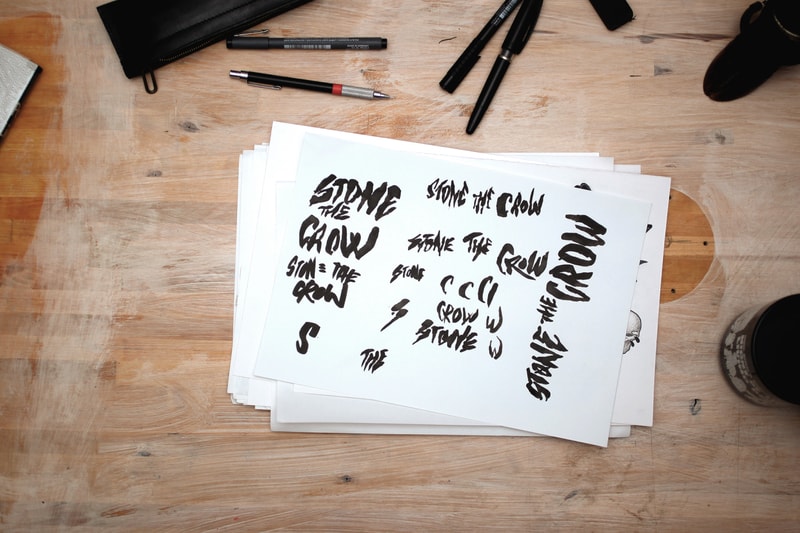 STONE
THE
CROW
STONE THE
CROW
S
STONE THE CROW
STONE THE CROW
STONE
C C C
CROW W
S
STONE W
THE
STONE THE CROW